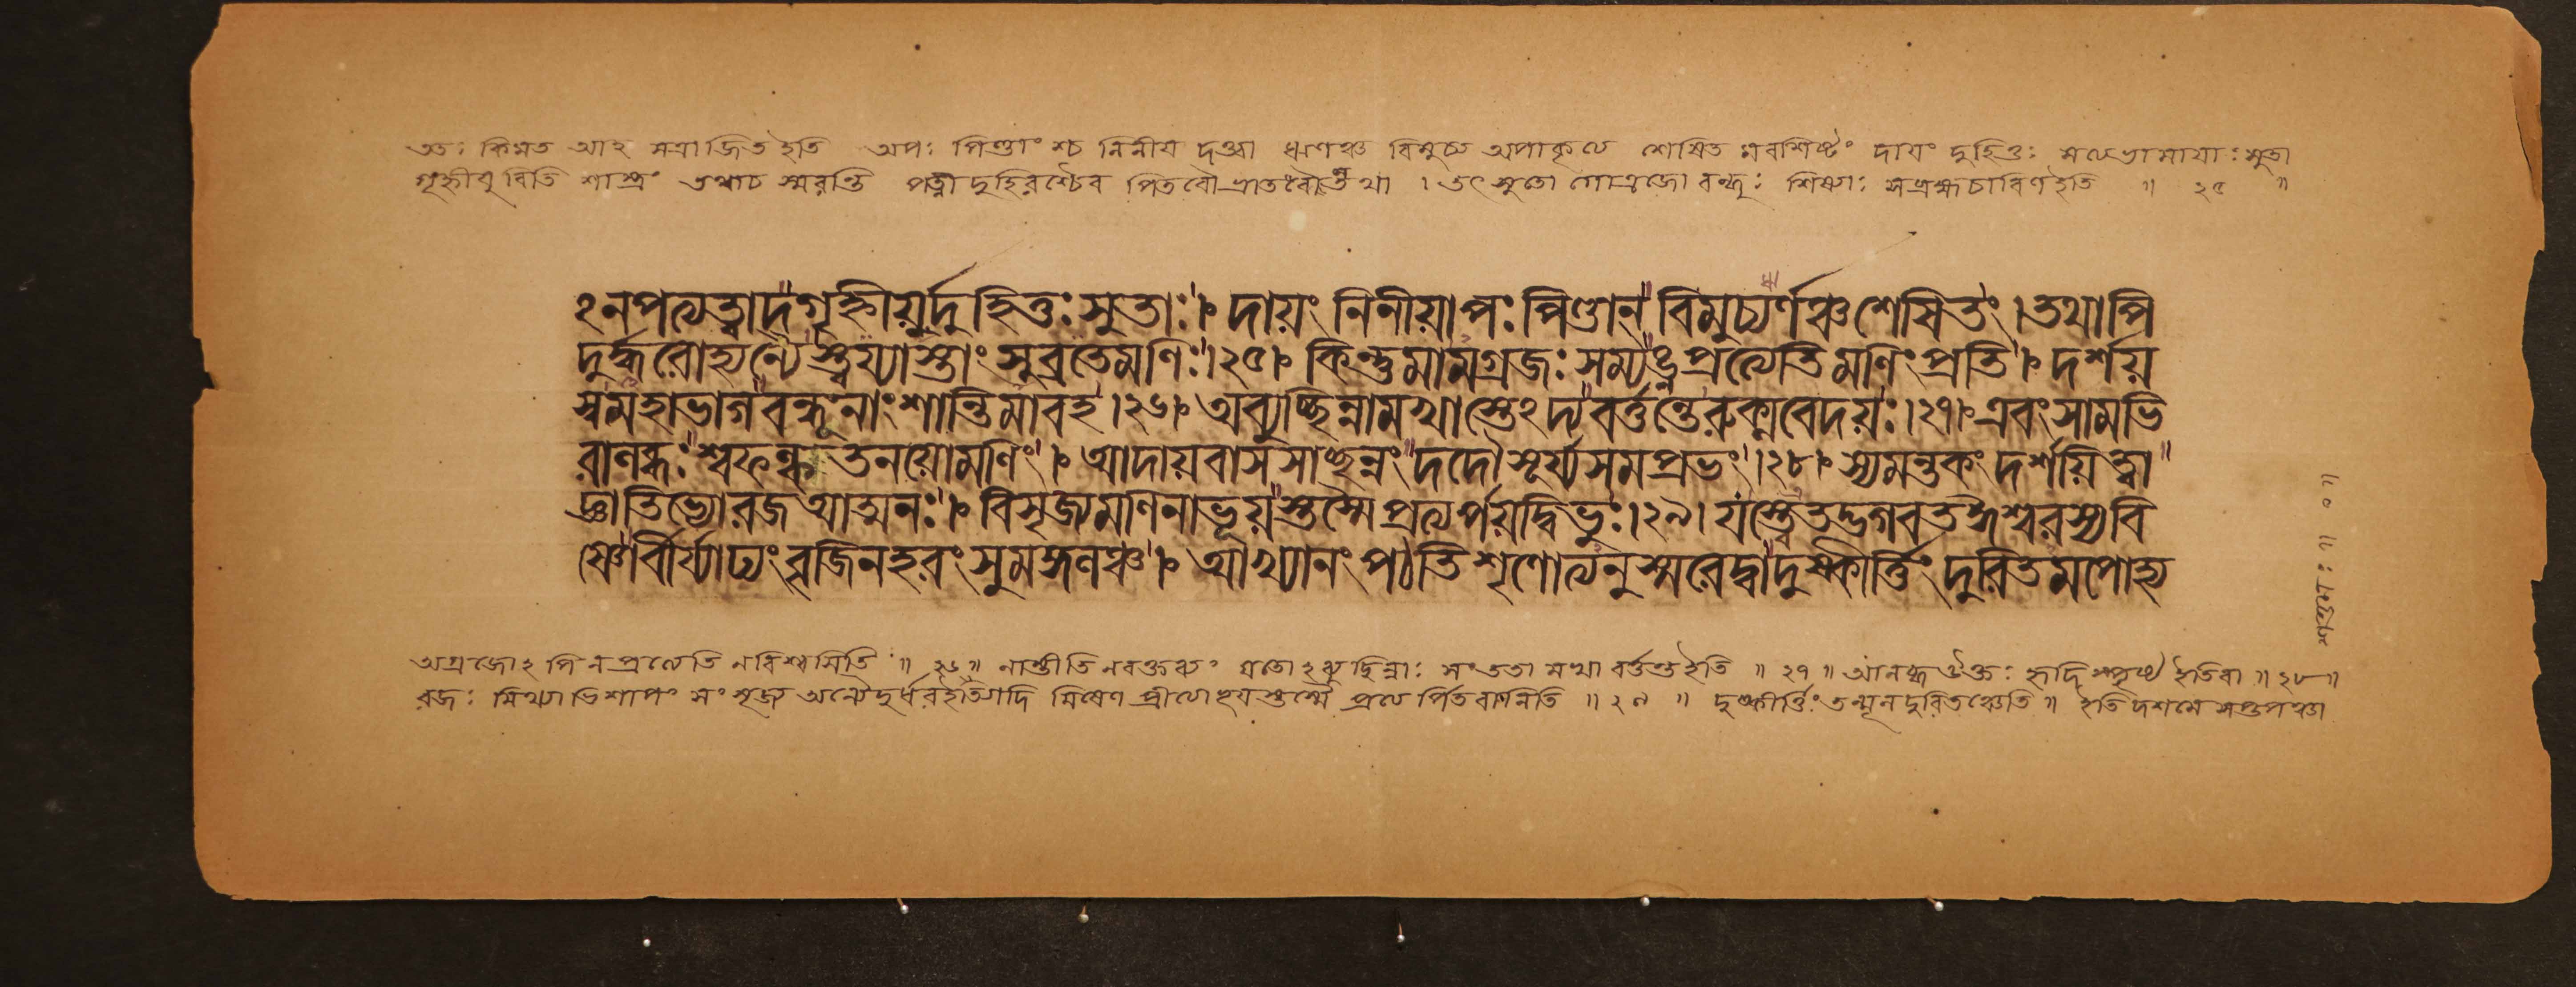 ততঃ কিমত আহ সত্রাজিত ইতি অপঃ পিণ্ডাংশ্চ নিনীয় দত্ত্বা ঋণঞ্চ বিমুচ্য অপাকৃত্য শেষিত মবশিষ্টং দায়ং দুহিতুঃ সত্যভামায়াঃ সুতা
গৃহ্নীয়ুরিতি শাস্ত্রং তথাচ স্মরন্তি পত্নী দুহিতরশ্চৈব পিতরৌ ভ্রাতরৌ তথা । তৎসুতো গোত্রজো বন্ধুঃ শিষ্যাঃ সব্রহ্মচারিণ ইতি ॥ ২৫ ॥
ঽনপত্যত্বাদ্গৃহ্নীয়ুর্দুহিতুঃ সুতাঃ । দায়ং নিনীয়াপঃ পিণ্ডান্ বিমুচ্যর্ণঞ্চ শেষিতং । তথাপি
দুর্দ্ধরোহ্যন্যৈস্ত্বয্যাস্তাং সুব্রতেমণিঃ । ২৫ । কিন্তুমামগ্রজঃ সম্যঙ্নপ্রত্যেতি মণিং প্রতি । দর্শয়
স্বমহাভাগ বন্ধূনাং শান্তিমাবহ । ২৬ । অব্যুচ্ছিন্নামখাস্তেঽদ্য বর্ত্তন্তেরুক্মবেদয়ঃ । ২৭ । এবং সামভি
রালব্ধঃ শ্বফল্কতনয়োমণিং । আদায়বাসসাচ্ছন্নং দদৌ সূর্য্যসমপ্রভং । ২৮ । স্যমন্তকং দর্শয়িত্বা
জ্ঞাতিভ্যোরজ আত্মনঃ । বিসৃজ্যমণিনাভূয়স্তস্মৈ প্রত্যর্পয়দ্বিভুঃ । ২৯ । যস্ত্বেতদ্ভগবত ঈশ্বরস্য বি
ষ্ণোর্বীর্য্যাঢ্যং বৃজিনহরং সুমঙ্গলঞ্চ । আখ্যানং পঠতি শৃণোত্যনুস্মরেদ্বা দুষ্কীর্ত্তিং দুরিতমপোহ্য
অগ্রজোঽপি ন প্রত্যেতি ন বিশ্বসিতি ॥ ২৬ ॥ নাস্তীতি নবক্তব্যং যতোঽব্যুচ্ছিন্নাঃ সংততা মখা বর্ত্তন্ত ইতি ॥ ২৭ ॥ আলব্ধ উক্তঃ হৃদি স্পৃষ্ট ইতিবা ॥ ২৮ ॥
রজঃ মিথ্যাভিশাপং সংমৃজ্য অন্যৈদুর্ধর ইত্যাদি মিষেণ প্রীত্যেহয়স্তস্মৈ প্রত্যর্পিতবানিতি ॥ ২৯ ॥ দুষ্কীর্ত্তিং তন্মূল দুরিতঞ্চেতি ॥ ইতি দশমে সপ্তপঞ্চা